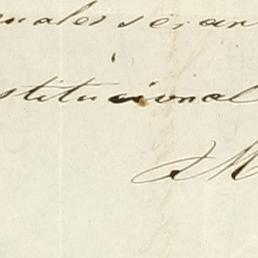 uales seran
stitucional